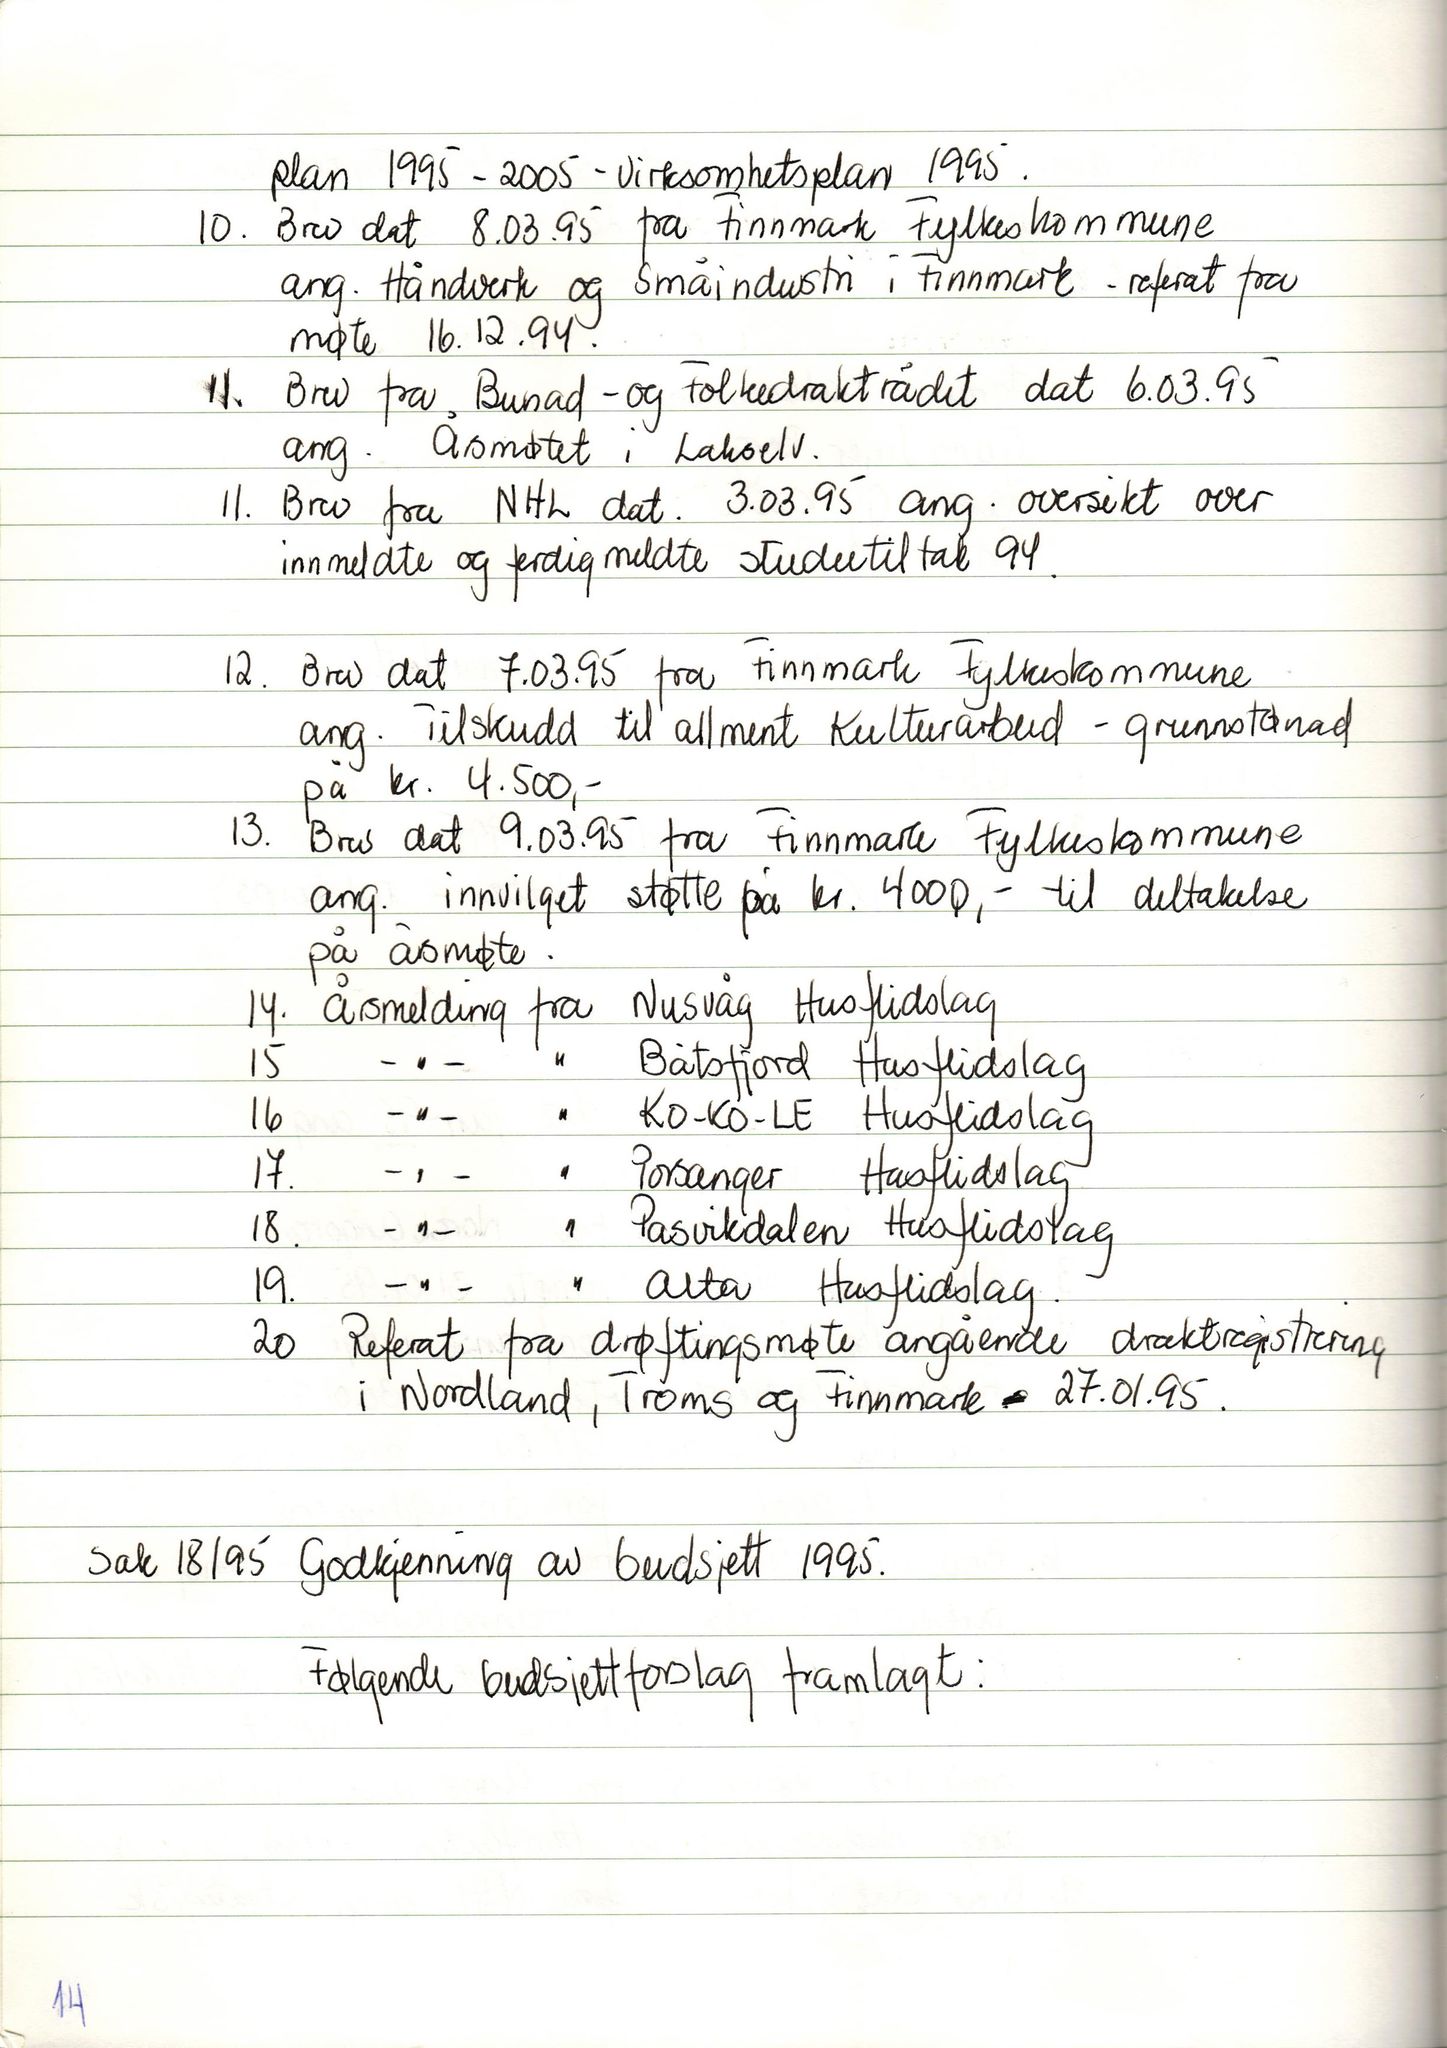 plan 1995 - 2005 - Virksomhetsplan 1995.
10. Brev dat 8.03.95 fra Finnmark Fylkeskommune
ang. Håndverk og Småindustri i Finnmark - referat fra
møte 16.12.94.
11. Brev fra Bunad - og Folkedraktrådet dat 6.03.95
ang. Årsmøtet i Lakselv.
11. Brev fra NHL dat. 3.03.95 ang. oversikt over
innmeldte og ferdigmeldte studietiltak 94.
12. Brev dat 7.03.95 fra Finnmark Fylkeskommune
ang. Tilskudd til allment Kulturarbeid - grunnstønad
på kr. 4.500,-
13. Brev dat 9.03.95 fra Finnmark Fylkeskommune
ang. innvilget støtte på kr. 4000,- til deltakelse
på årsmøte.
14. Årsmelding fra Nusvåg Husflidslag
15 - " - " Båtsfjord Husflidslag
16 - " - " KO-KO-LE Husflidslag
17. - " - " Porsanger Husflidslag
18. - " - " Pasvikdalen Husflidslag
19. - " - " Alta Husflidslag.
20 Referat fra drøftingsmøte angående draktregistrering
i Nordland, Troms og Finnmark - 27.01.95.
Sak 18/95 Godkjenning av budsjett 1995.
Følgende budsjettforslag framlagt:
14